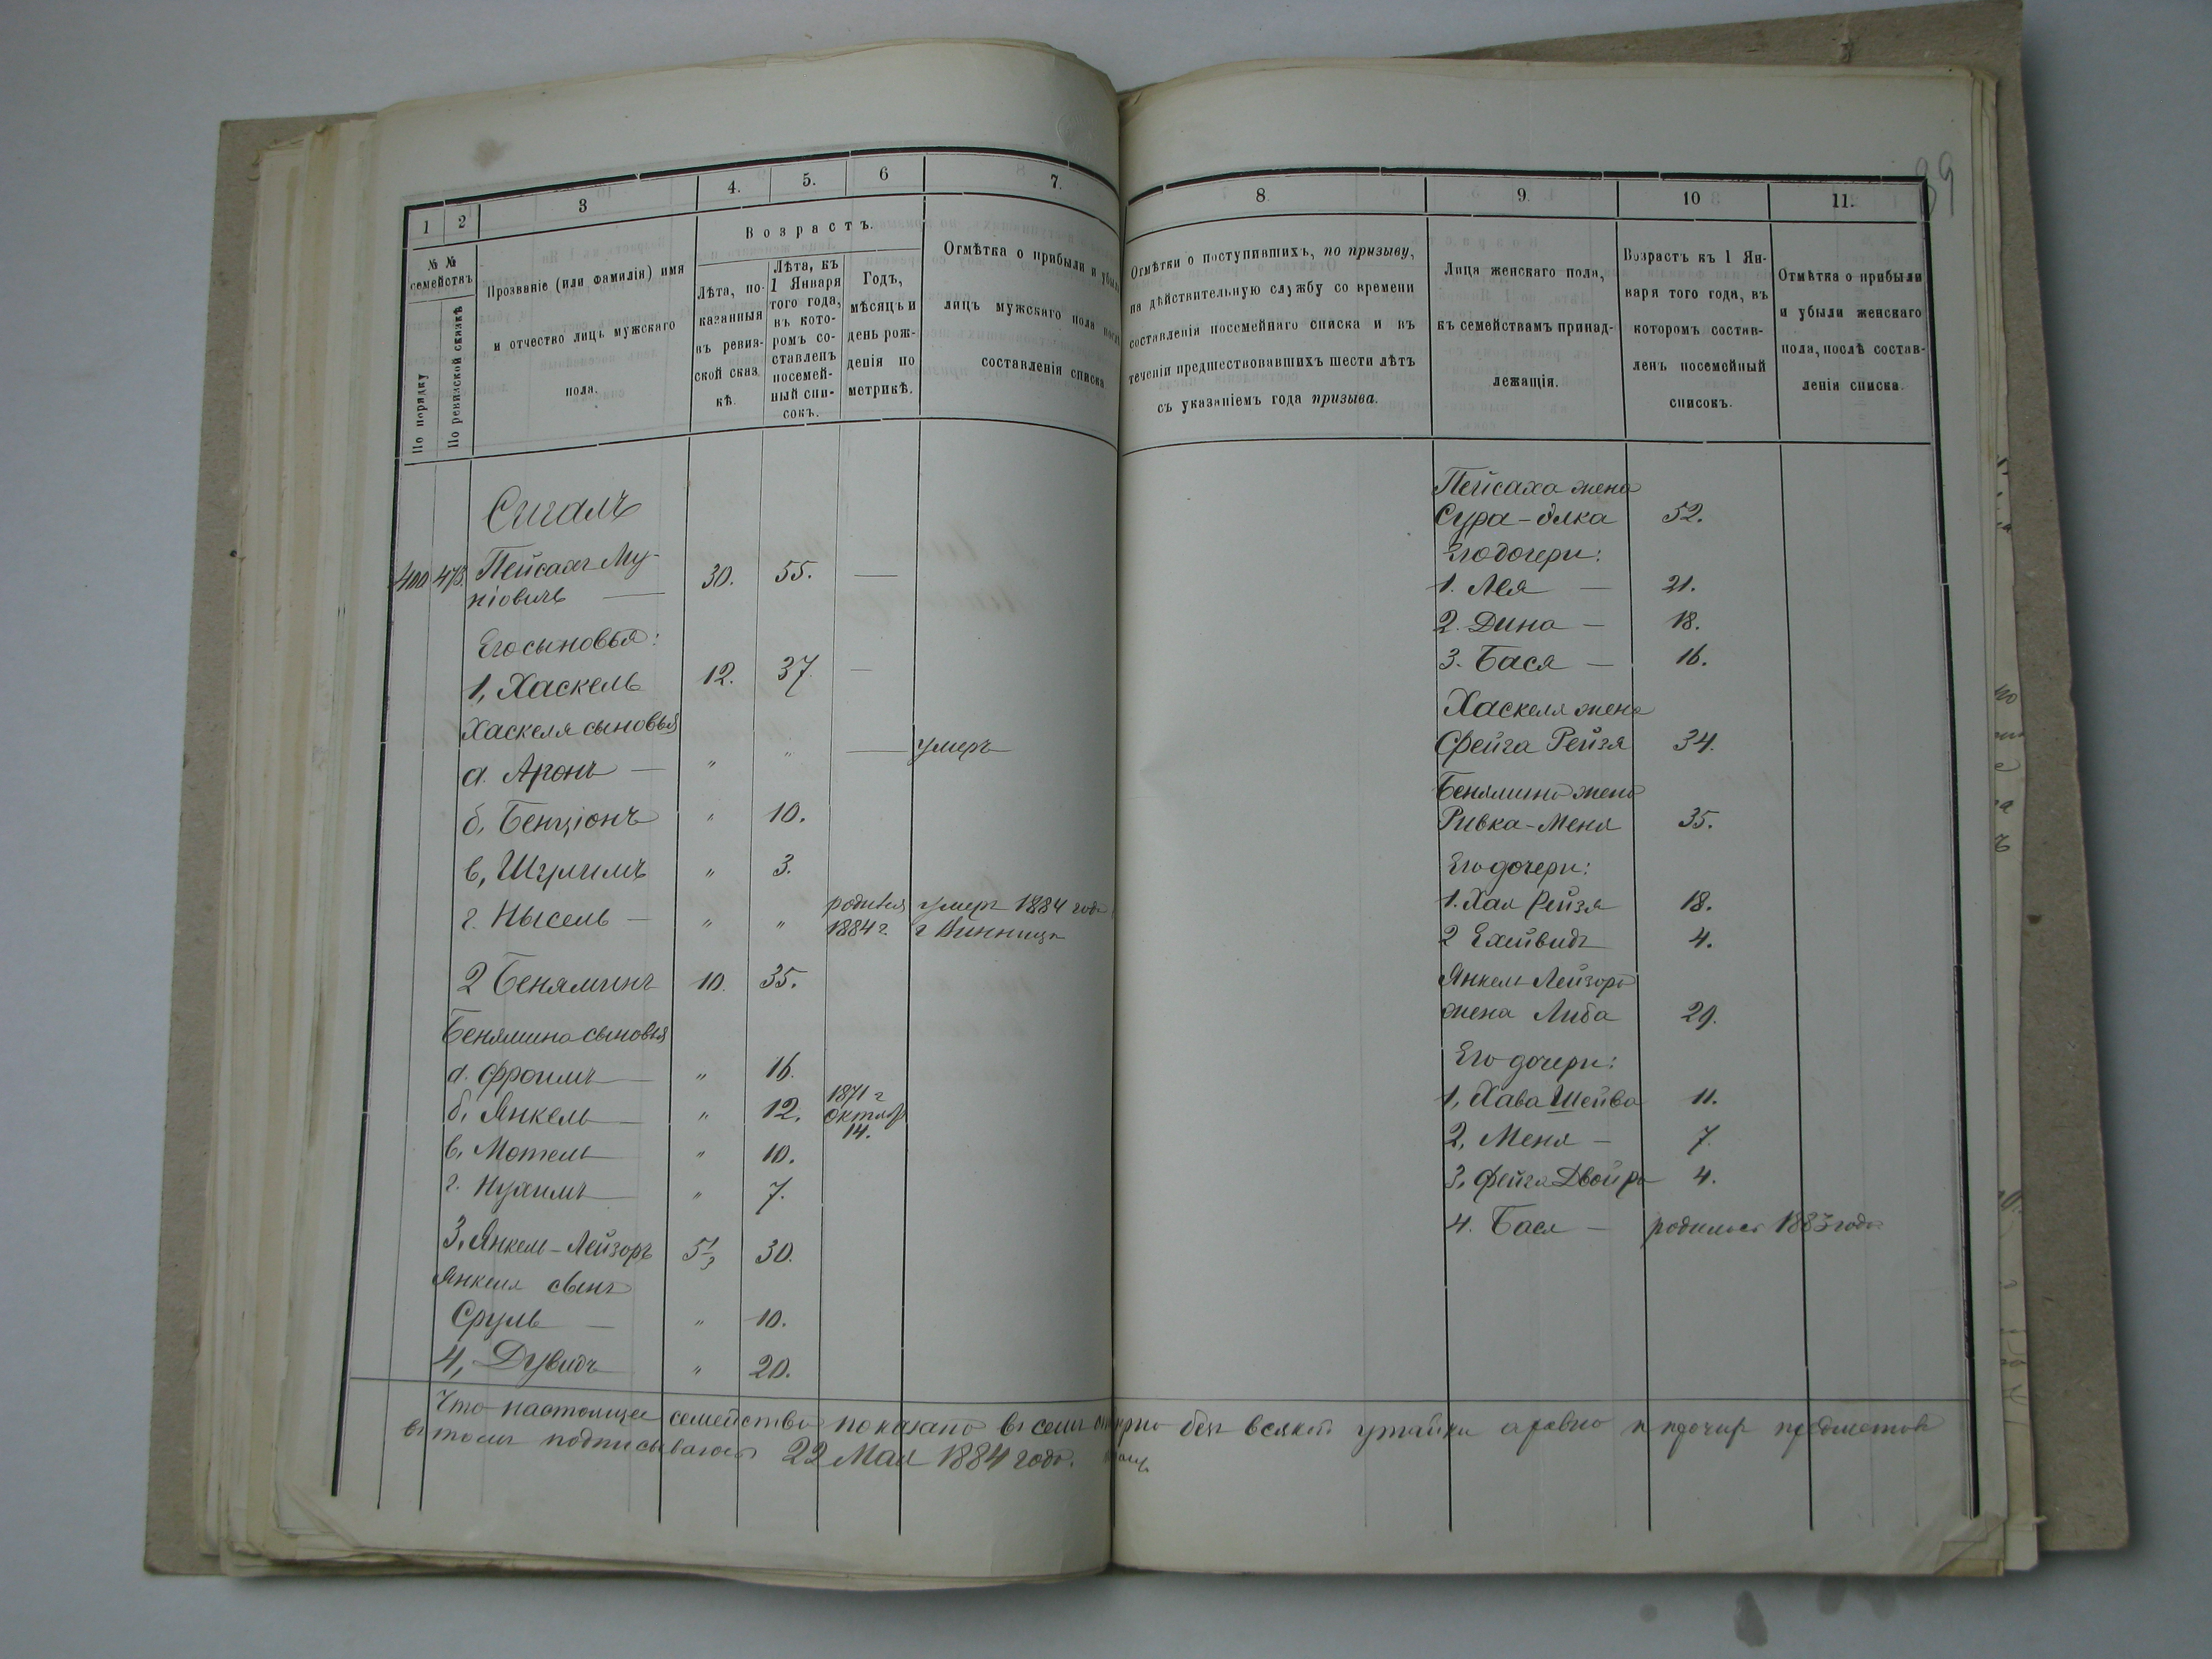 39
1
2
3
4.
5.
6
7.
№ №
семействъ
По порядку
По ревизской сказкѣ
Прозваніе (или фамилія) имя
и отчество лицъ мужскаго
пола.
Возрастъ.
Лѣта, по-
казанныя
въ ревиз-
ской сказ
кѣ.
Лѣта, къ
1 Января
того года,
въ кото-
ромъ со-
ставленъ
посемей-
ный спи-
сокъ.
Годъ,
мѣсяцъ и
день рож-
денія по
метрикѣ.
Отмѣтка о прибыли и убыли
лицъ мужскаго пола послѣ
составленія списка
Сигалъ
400 473. Пейсахъ Му- 30. 55. —
ніовичъ —
Его сыновья:
1, Хаскель 12. 37. —
Хаскеля сыновья
а. Аронъ — " " — умеръ
б, Бенціонъ " 10.
в, Шулимъ " 3.
г. Нысель — " " родился умеръ 1884 года
1884 г. г Винница
2 Беняминъ 10. 35.
Бенямина сыновья
а. Фроимъ — " 16.
б, Янкель — " 12. 1871 г
Октябр
14.
в, Мотель " 10.
г. Нухимъ — " 7.
3, Янкель-Лейзоръ 5 1/2 30.
Янкеля сынъ
Сруль — " 10.
4, Дувидъ " 20.
8.
9.
10
11.
Отмѣтки о поступившихъ, по призыву,
на дѣйствительную службу со времени
составленія посемейнаго списка и въ
теченіи предшествовавшихъ шести лѣтъ
съ указаніемъ года призыва.
Лица женскаго пола,
къ семействамъ принад-
лежащія.
Возрастъ къ 1 Ян-
варя того года, въ
которомъ состав-
ленъ посемейный
списокъ.
Отмѣтка о прибыли
и убыли женскаго
пола, послѣ состав-
ленія списка.
Пейсаха жена
Сура-Элка 52.
Его дочери:
1. Лея — 21.
2. Дина — 18.
3. Бася — 16.
Хаскеля жена
Фейга Рейзя 34.
Бенямина жена
Ривка-Меня 35.
Его дочери:
1. Хая Рейзя 18.
2 Ехейвидъ 4.
Янкель Лейзора
жена Либа 29.
Его дочери:
1, Хава Шейва 11.
2, Меня — 7.
3, Фейга Двойра 4.
4. Бася — родилась 1883 года
Что настоящее семейство показано въ семъ верно безъ всякой утайки а равно и прочих предметов
въ томъ подписываюсь 22 Мая 1884 года.